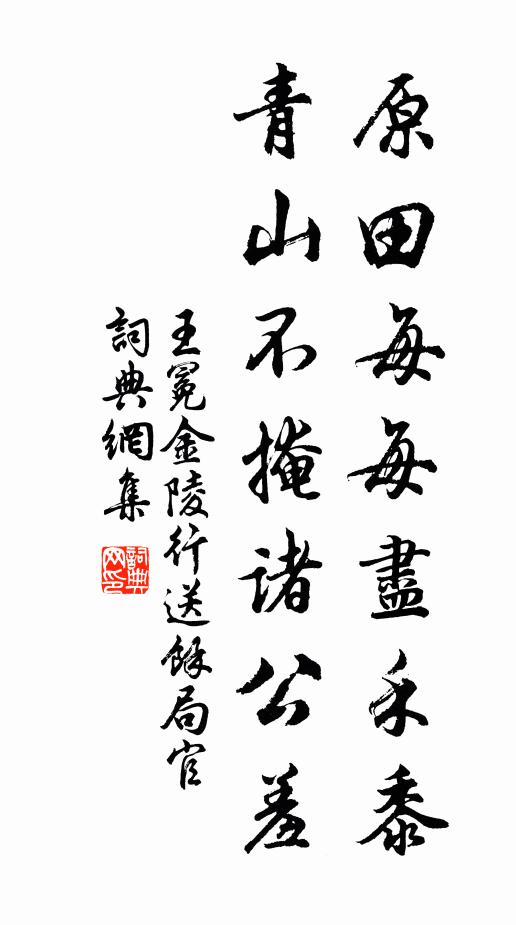 原田每每盡禾黍
青山不掩諸公羞
王冕金陵行送餘局官
詞典網集
詞典网印